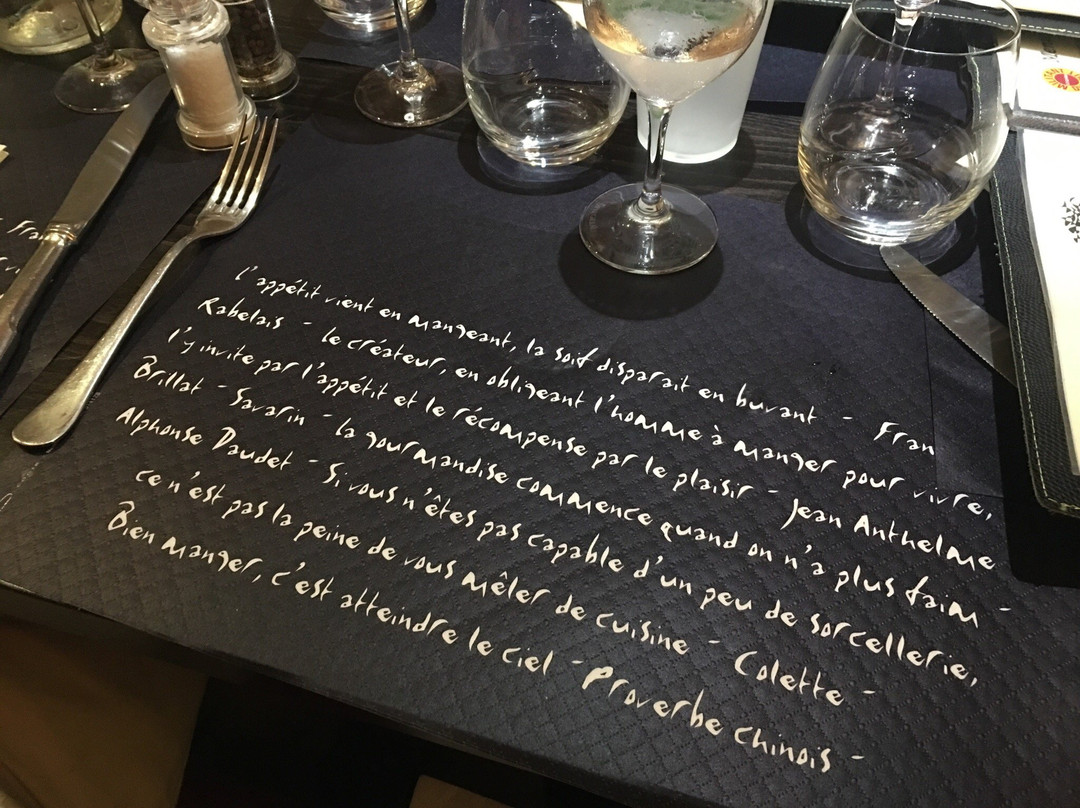 l'appétit vient en mangeant, la soif disparait en buvant - Fran
Rabelais - le créateur, en obligeant l'homme à manger pour vivre,
l'y invite par l'appétit et le récompense par le plaisir - Jean Anthelme
Brillat - Savarin - la gourmandise commence quand on n'a plus faim -
Alphonse Daudet - Si vous n'êtes pas capable d'un peu de sorcellerie,
ce n'est pas la peine de vous mêler de cuisine - Colette -
Bien manger, c'est atteindre le ciel - Proverbe chinois -